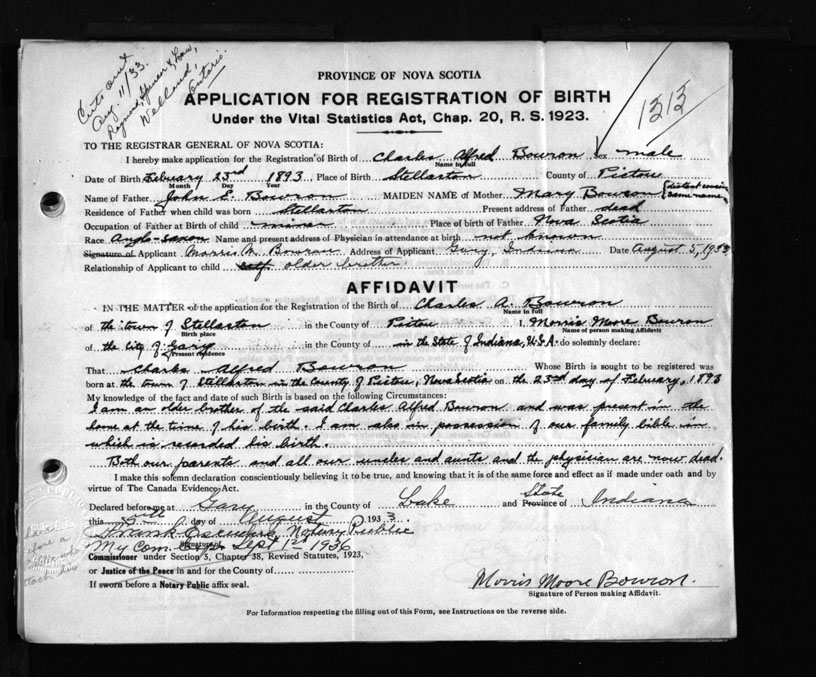 Certs out
Aug. 11/33.
Raymond, Spencer & Law,
Welland,
Ontario.
1313
PROVINCE OF NOVA SCOTIA
APPLICATION FOR REGISTRATION OF BIRTH
Under the Vital Statistics Act, Chap. 20, R. S. 1923.
TO THE REGISTRAR GENERAL OF NOVA SCOTIA:
I hereby make application for the Registration of Birth of Charles Alfred Bowron sex male
Name in Full
Date of Birth February 23rd 1893 Place of Birth Stellarton County of Pictou
Month Day Year
Name of Father John E. Bowron MAIDEN NAME of Mother Mary Bowron (distant cousin same name)
Residence of Father when child was born Stellarton Present address of Father dead
Occupation of Father at Birth of child miner Place of birth of Father Nova Scotia
Race Anglo-Saxon Name and present address of Physician in attendance at birth not known
Signature of Applicant Morris M. Bowron Address of Applicant Gary, Indiana Date August 5, 1933
Relationship of Applicant to child self older brother
AFFIDAVIT
IN THE MATTER of the application for the Registration of the Birth of Charles A. Bowron
Name in Full
of the town of Stellarton in the County of Pictou I, Morris Moore Bowron
Birth place Name of person making Affidavit
of the City of Gary in the County of in the State of Indiana, U.S.A. do solemnly declare:
Present residence
That Charles Alfred Bowron Whose Birth is sought to be registered was
born at the town of Stellarton in the County of Pictou, Nova Scotia on the 23rd day of February, 1893
My knowledge of the fact and date of such Birth is based on the following Circumstances:
I am an older brother of the said Charles Alfred Bowron and was present in the
home at the time of his birth. I am also in possession of our family bible in
which is recorded his birth.
Both our parents and all our uncles and aunts and the physician are now dead.
I make this solemn declaration conscientiously believing it to be true, and knowing that it is of the same force and effect as if made under oath and by
virtue of The Canada Evidence Act.
Declared before me at Gary in the County of Lake and State Province of Indiana
this day of August 1933
Frank Notary Public
Signature of
My Com. Exps Sept 1st 1936
Commissioner under Section 5, Chapter 38, Revised Statutes, 1923,
or Justice of the Peace in and for the County of
If sworn before a Notary Public affix seal.
Morris Moore Bowron.
Signature of Person making Affidavit.
For Information respecting the filling out of this Form, see Instructions on the reverse side.